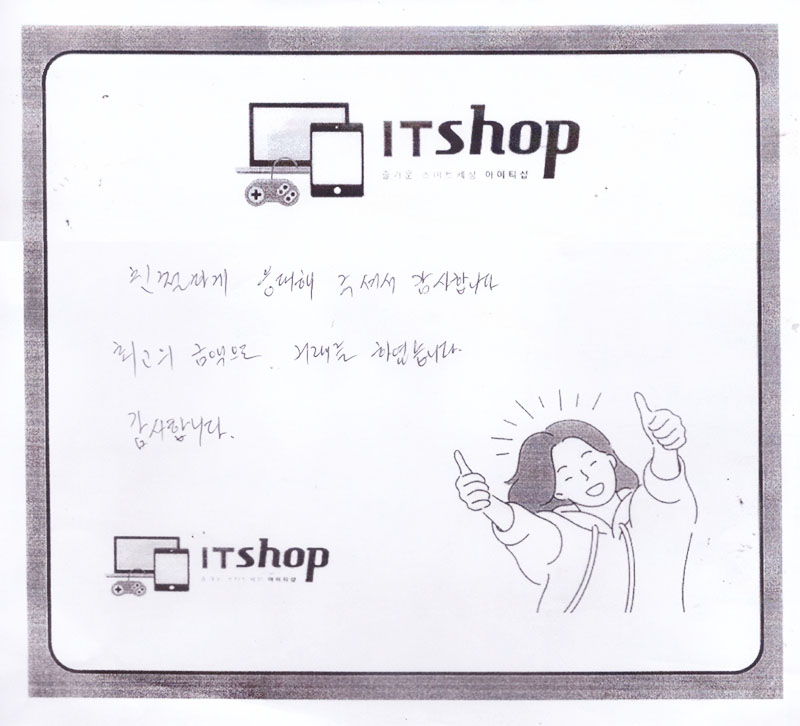 ITshop
즐거운 스마트세상 아이티샵
친절하게 응대해 주셔서 감사합니다
최고의 금액으로 거래를 하였습니다.
감사합니다.
ITshop
아이티샵